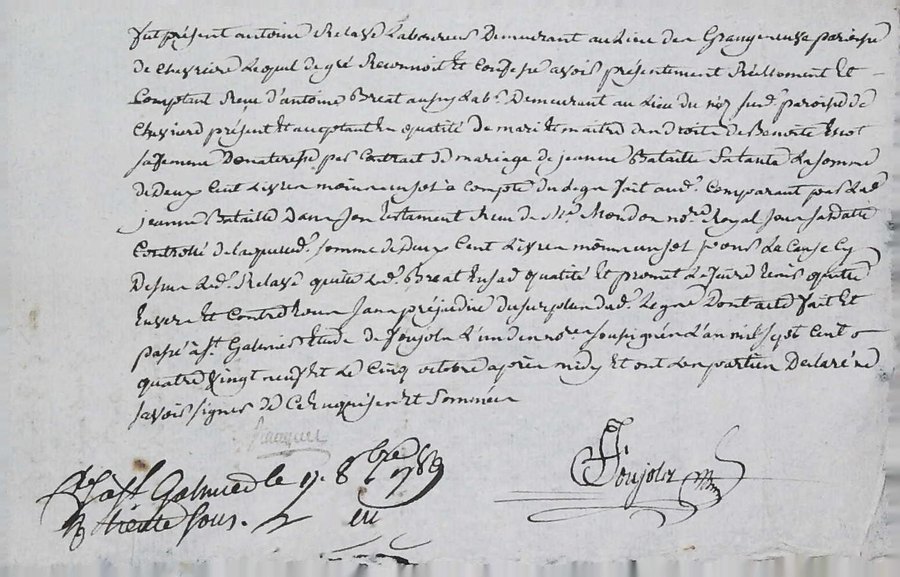 fut présent antoine Relave Laboureur Demeurant au Lieu de Grangeneuve paroisse
de Chevriere Lequel de gré Reconnoit Et Confesse avoir présentement Réellement Et
Comptent Reçu d'antoine Breat aussy Lab.r Demeurant au Lieu du sud. paroisse de
Chevrier présent Et acceptant En qualité De mari Et maitre Des droits de Benoite
sa femme par Contrat de mariage de jeanne Bataille Sa tante La somme
de Deux Cent Livres moins un set a compte Du Legs fait aud. Comparant par Lad.
jeanne Bataille Dans Son testament Reçu de M.e Mondon no.re Royal jour sa datte
Controllé de laquelle d. somme de Deux Cent Livres moins un set pour La Cause Cy
Dessus Led. Relave quitte Led. Breat En sad qualité Et promet Le faire tenir quitte
Envers Et Contre tous Sans préjudice Du surplus dud. Legs Dont acte Fait Et
passé a St. Galmier Etude de Poujolz L'un des no.res soussignés L'an mil sept Cent
quatre vingt neuf Et Le Cinq octobre après midy Et ont Les parties Déclaré ne
savoir signer De Ce Enquises Et Sommées
C.lé à St Galmier le 17. 8bre 1789
R trente sous.
Poujolz